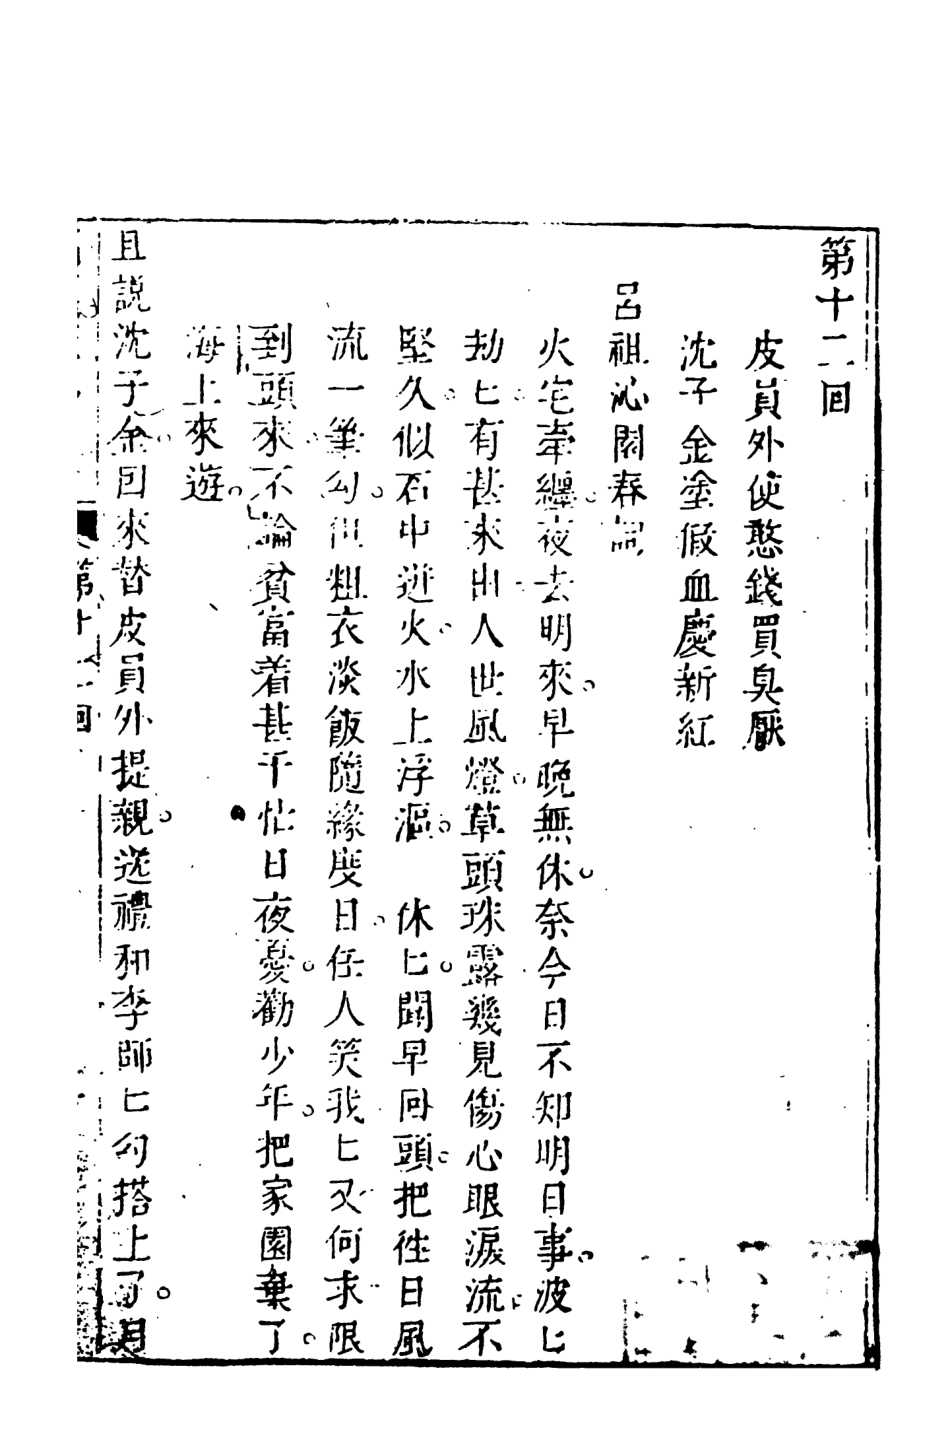 第十二回
皮員外使憨錢買臭厭
沈子金塗假血慶新紅
呂祖沁園春詞
火宅牽纏夜去明來早晚無休奈今日不知明日事波匕
劫匕有甚來由人世風燈草頭珠露幾見傷心眼淚流不
堅久似石中迸火水上浮漚 休匕聞早回頭把往日風
流一筆勾但粗衣淡飯隨緣度日任人笑我匕又何求限
到頭來不論貧富着甚干忙日夜憂勸少年把家園棄了
海上來遊
且說沈子金回來替皮員外提親送禮和李師匕勾搭上了
第十二回